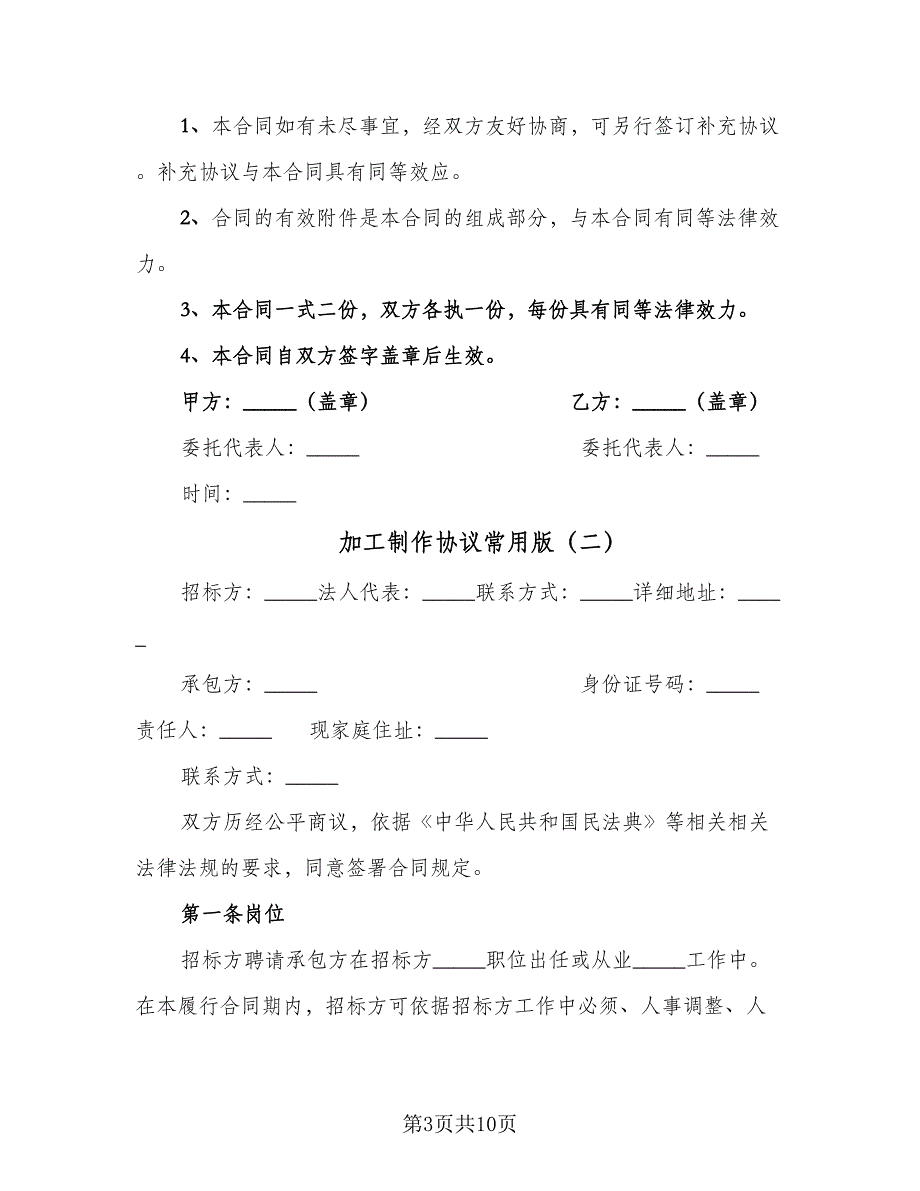 1、本合同如有未尽事宜，经双方友好协商，可另行签订补充协议
。补充协议与本合同具有同等效应。
2、合同的有效附件是本合同的组成部分，与本合同有同等法律效
力。
3、本合同一式二份，双方各执一份，每份具有同等法律效力。
4、本合同自双方签字盖章后生效。
甲方：_____（盖章） 乙方：_____（盖章）
委托代表人：_____ 委托代表人：_____
时间：_____
加工制作协议常用版（二）
招标方：_____法人代表：_____联系方式：_____详细地址：____
_
承包方：_____ 身份证号码：_____
责任人：_____ 现家庭住址：_____
联系方式：_____
双方历经公平商议，依据《中华人民共和国民法典》等相关相关
法律法规的要求，同意签署合同规定。
第一条岗位
招标方聘请承包方在招标方_____职位出任或从业_____工作中。
在本履行合同期内，招标方可依据招标方工作中必须、人事调整、人
第3页共10页